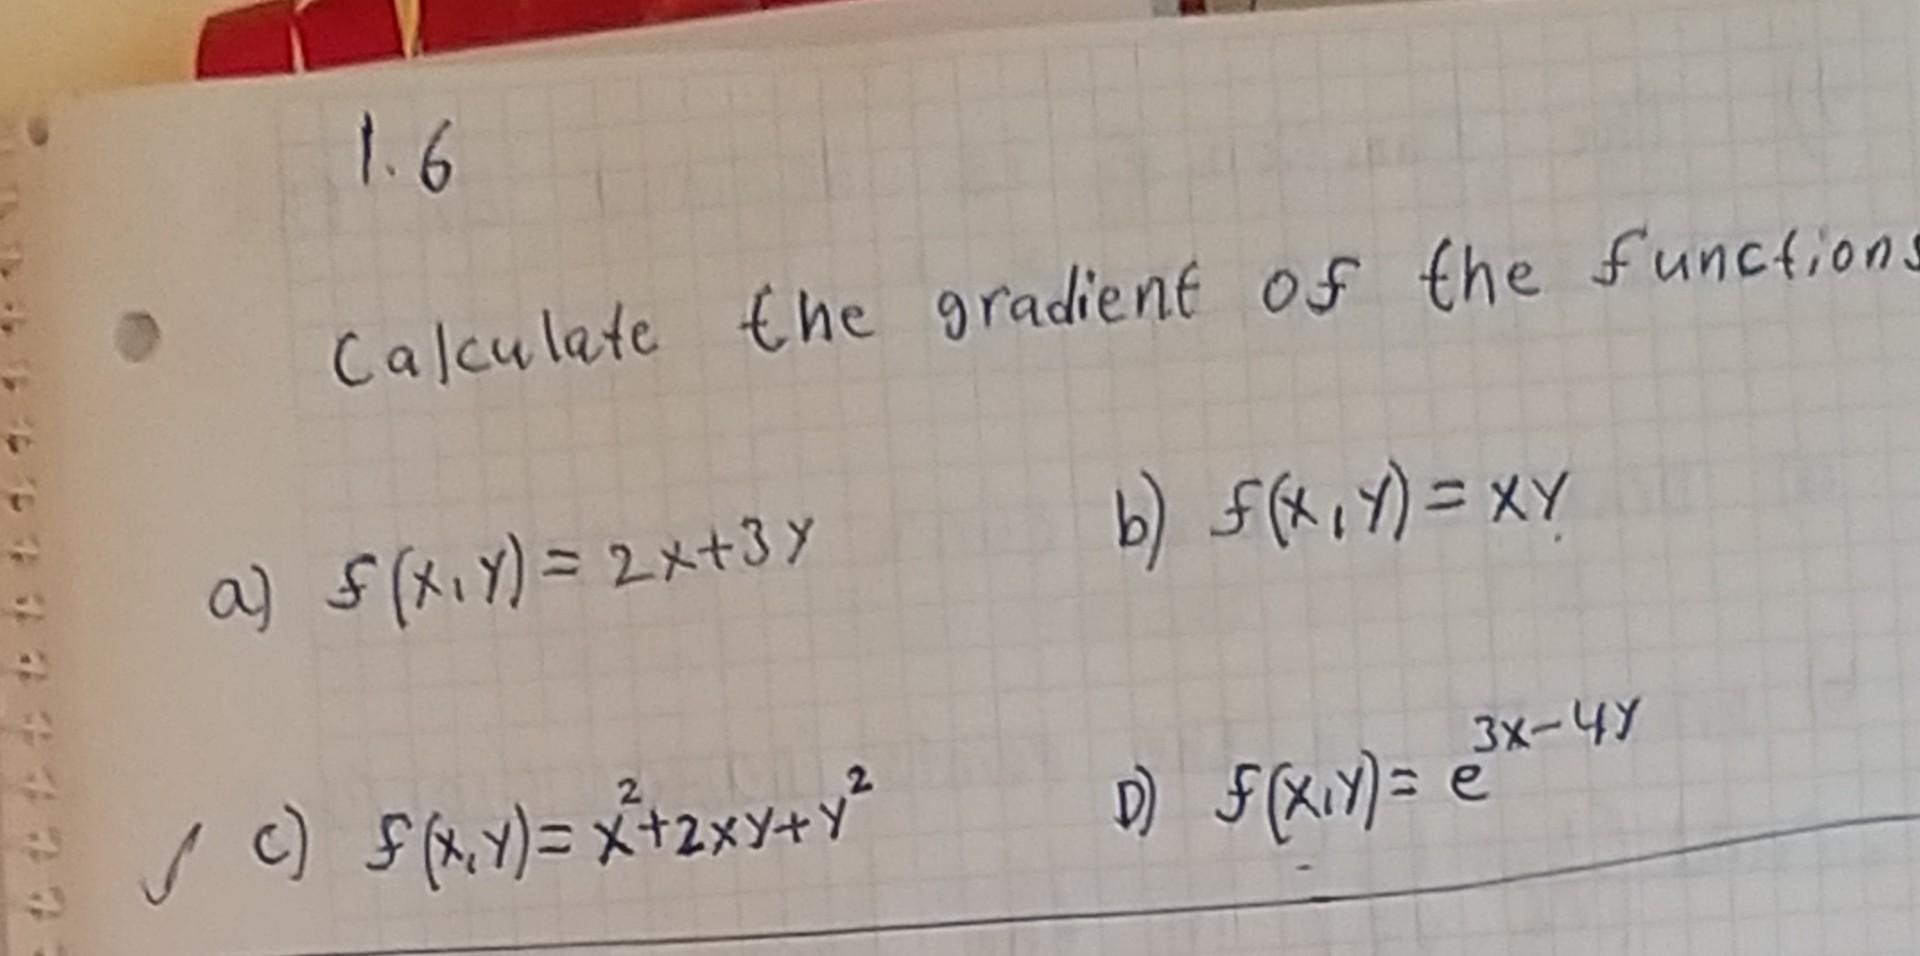 1.6
Calculate the gradient of the functions
a) f(x,y) = 2x+3y
b) f(x,y) = xy
c) f(x,y) = x²+2xy+y²
D) f(x,y) = e^3x-4y